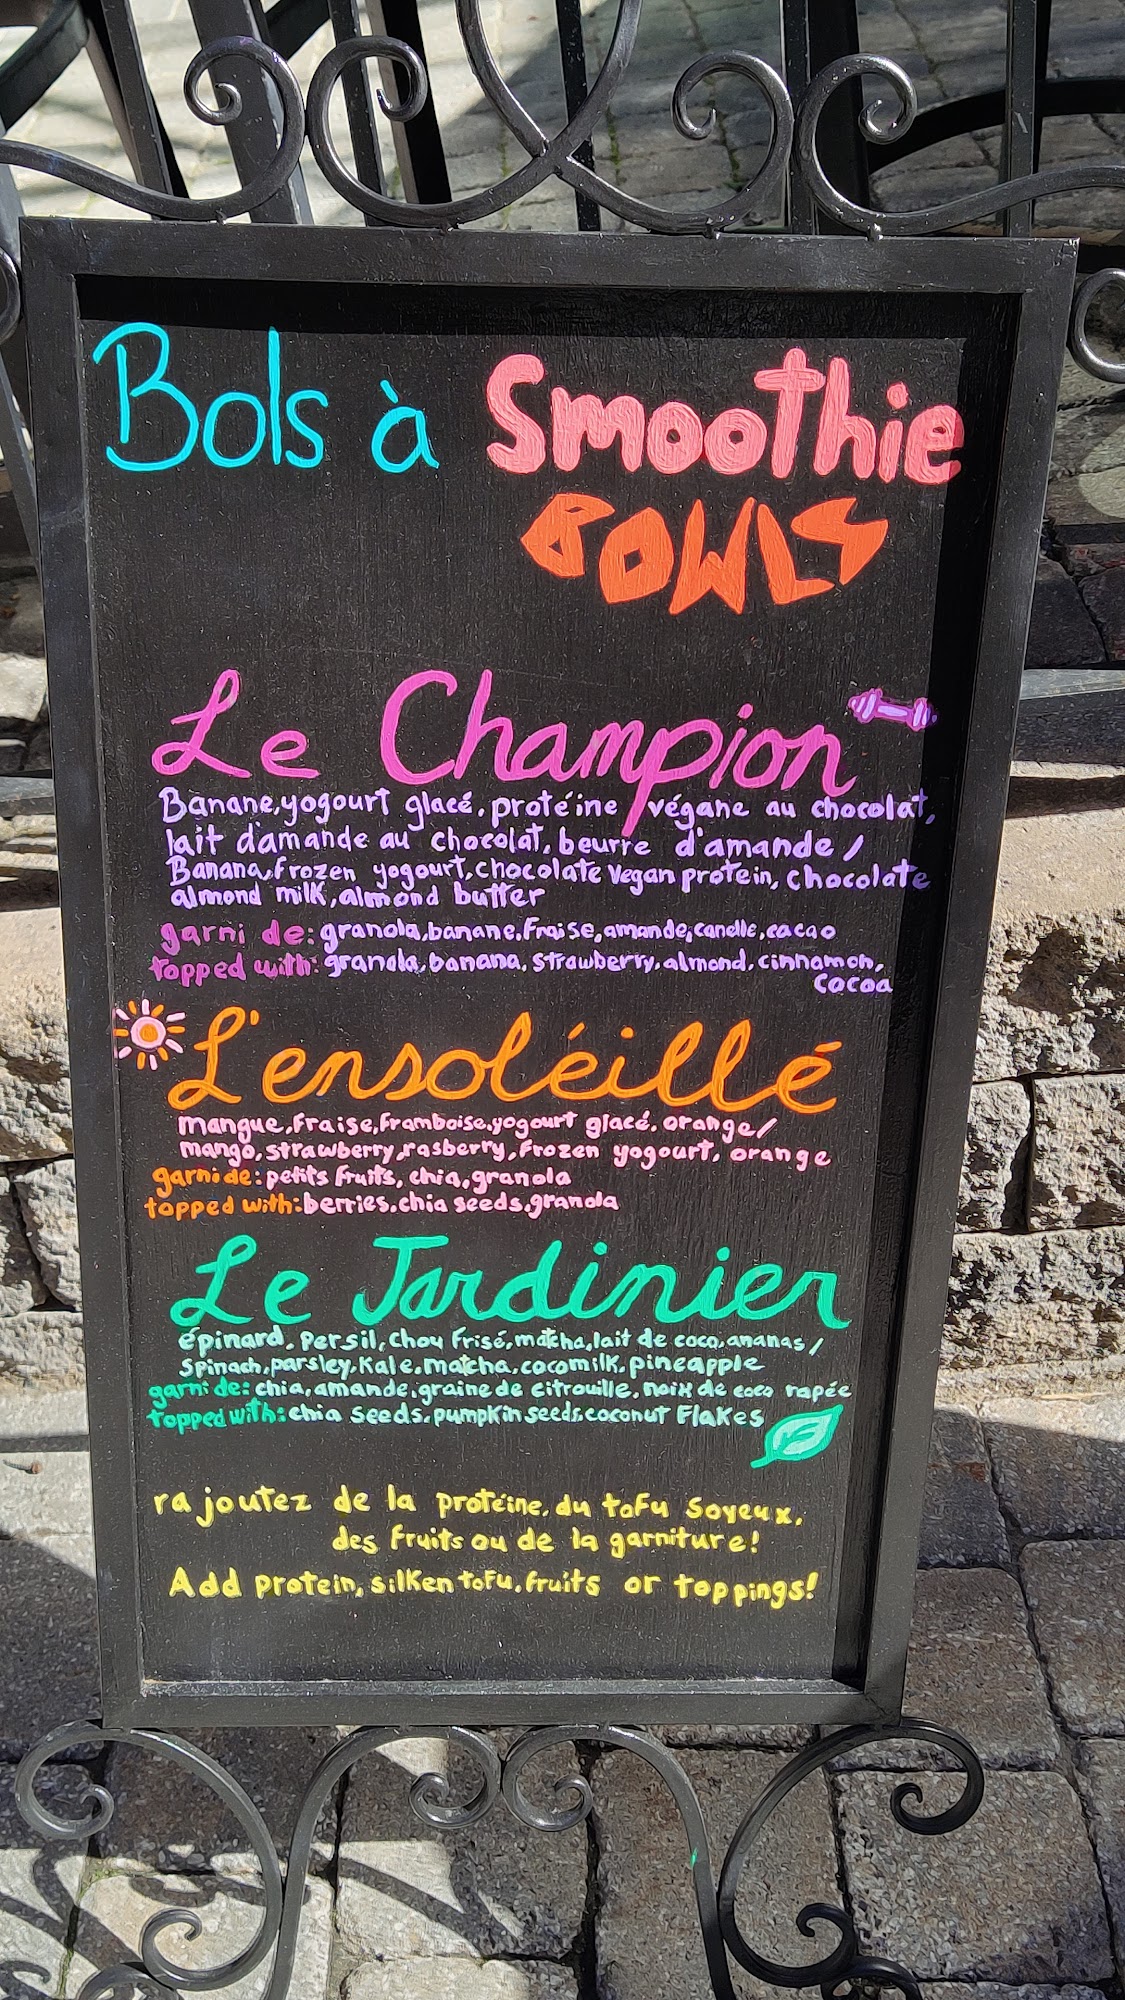 Bols à Smoothie
BOWLS
Le Champion
Banane, yogourt glacé, protéine végane au chocolat,
lait d'amande au chocolat, beurre d'amande /
Banana, frozen yogourt, chocolate vegan protein, chocolate
almond milk, almond butter
garni de: granola, banane, fraise, amande, canelle, cacao
topped with: granola, banana, strawberry, almond, cinnamon,
cocoa
L'ensoléillé
mangue, fraise, framboise, yogourt glacé, orange /
mango, strawberry, rasberry, frozen yogourt, orange
garni de: petits fruits, chia, granola
topped with: berries, chia seeds, granola
Le Jardinier
épinard, persil, chou frisé, matcha, lait de coco, ananas /
spinach, parsley, kale, matcha, coco milk, pineapple
garni de: chia, amande, graine de citrouille, noix de coco rapée
topped with: chia seeds, pumpkin seeds, coconut flakes
rajoutez de la protéine, du tofu soyeux,
des fruits ou de la garniture!
Add protein, silken tofu, fruits or toppings!